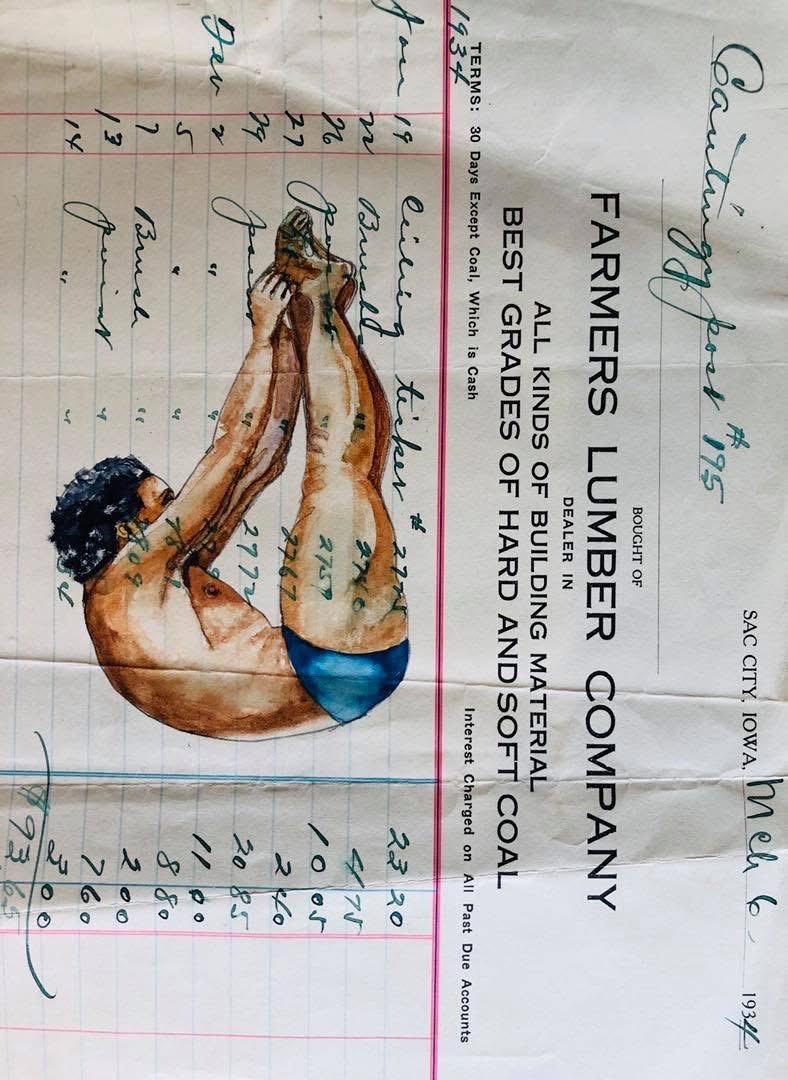 SAC CITY, IOWA, Mch 6- 1934
post # 195
BOUGHT OF
FARMERS LUMBER COMPANY
DEALER IN
ALL KINDS OF BUILDING MATERIAL
BEST GRADES OF HARD AND SOFT COAL
TERMS: 30 Days Except Coal, Which is Cash Interest Charged on All Past Due Accounts
1934
Jan 19 ticket # 23 20
22 Brush " 4 75
26 " 2757 10 05
27 " 2767 2 40
29 " 2772 20 85
Feb 2 " " 11 00
5 " " 8 80
7 Brush " 2 00
13 paint " 7 60
14 " " 3 00
$93 65